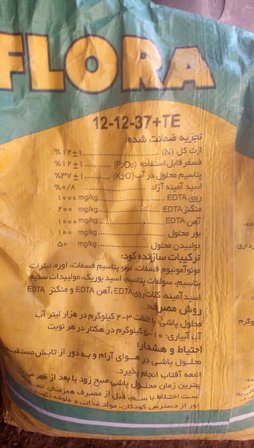 FLORA
12-12-37+TE
تجزیه ضمانت شده:
ازت کل (N) ۱۲±۱%
فسفر قابل استفاده (P₂O₅) ۱۲±۱%
پتاسیم محلول در آب (K₂O) ۳۷±۱%
اسید آمینه آزاد ۰/۸%
روی EDTA ۱۰۰۰ mg/kg
منگنز EDTA ۲۰۰ mg/kg
آهن EDTA ۱۰۰۰ mg/kg
بور محلول ۱۰۰ mg/kg
مولیبدن محلول ۵۰ mg/kg
ترکیبات سازنده کود:
مونوآمونیوم فسفات، مونو پتاسیم فسفات، اوره، نیترات
پتاسیم، سولفات پتاسیم، اسید بوریک، مولیبدات سدیم
اسید آمینه، کلات روی EDTA، آهن EDTA و منگنز EDTA
روش مصرف:
محلول پاشی: غلظت ۳-۲ کیلوگرم در هزار لیتر آب
آب آبیاری: ۱۰-۵ کیلوگرم در هکتار در هر نوبت
احتیاط و هشدار:
محلول پاشی در هوای آرام و به دور از تابش مستقیم
اشعه آفتاب انجام پذیرد.
بهترین زمان محلول پاشی صبح زود یا بعد از ظهر
است، احتیاط با سم، قبل از مصرف همزمان
دور از دسترس کودکان، مواد غذایی و علوفه